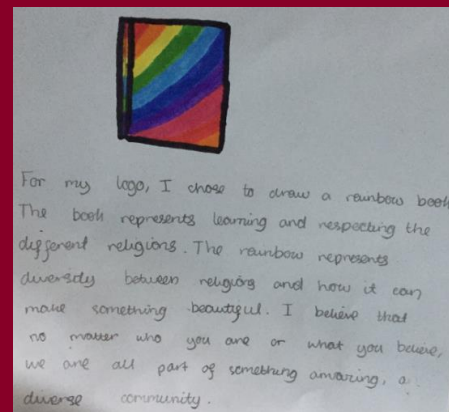 For my logo, I chose to draw a rainbow book
The book represents learning and respecting the
different religions. The rainbow represents
diversity between religions and how it can
make something beautiful. I believe that
no matter who you are or what you believe,
we are all part of something amazing, a
diverse community.